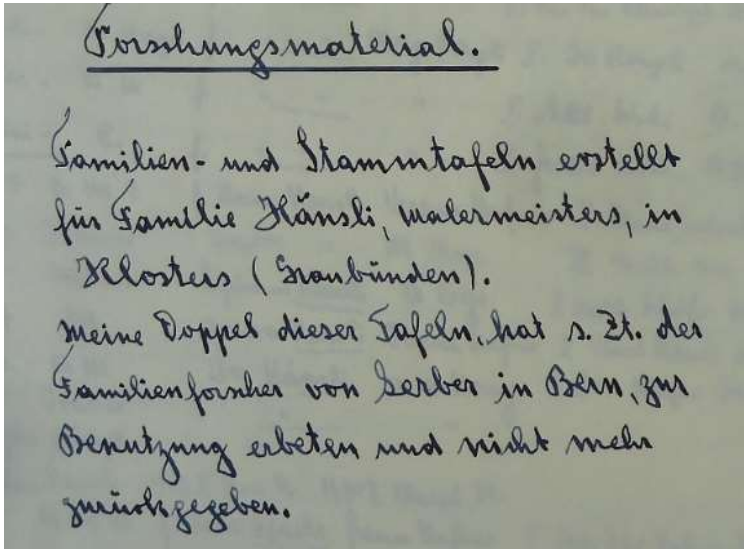 Forschungsmaterial.
Familien- und Stammtafeln erstellt
für Familie Hänsli, Malermeisters, in
Klosters (Graubünden).
Meine Doppel dieser Tafeln, hat s. Zt. der
Familienforscher von Gerber in Bern, zur
Benutzung erbeten und nicht mehr
zurückgegeben.